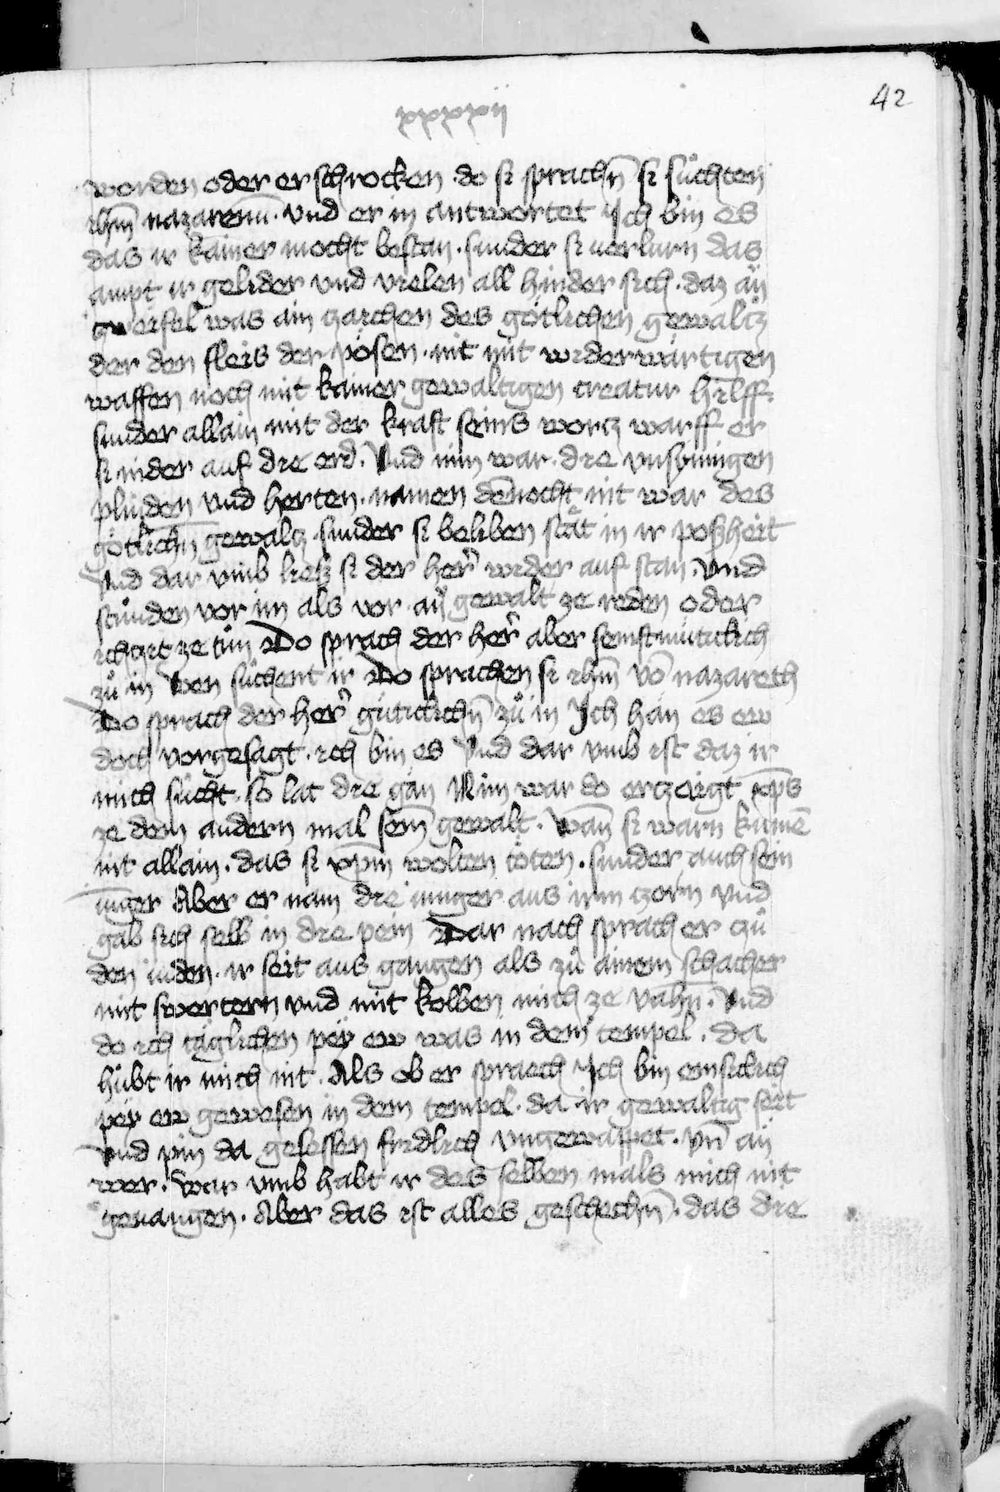 42
xxxxij
worden oder erschrocken do si sprachn̄ si sůchten
ihm̄ nazarenū. vnd er in antwortet Ich bin es
das ir kainer mocht bestan. sunder si verlurn das
ampt ir gelider vnd vielen all hinder sich. daz an̄
zweifel was ain zaichen des götlichen gewaltz
der den fleis der pösen. nit mit widerwärtigen
waffen noch mit kainer gewaltigen creatur hilff
sunder allain mit der kraft seins worcz warff er
si nider auf die erd. Vnd nim war. die vnsynnigen
plinden vnd herten. namen dēnocht nit war des
götlichn̄ gewalcz sunder si beliben stät in ir poßheit
Vnd dar vmb liesz si der her̄ wider auf stan. vnd
stůnden vor im als vor. an̄ gewalt ze reden oder
ichczt ze tůn Do sprach der her̄ aber senftmüticklich
zů in Wen sůchent ir Do sprachen si ihm̄ vō nazareth
Do sprach der her̄ gůticklichn̄ zů in Ich han es ew
doch vorgesagt. ich bin es Vnd dar vmb ist daz ir
mich sůcht. so lat die gan Nim war do erczaigt xp̄s
ze dem andern mal sein̄ gewalt. wan̄ si warn kumē
nit allain. das si xp̄m wolten töten. sunder auch sein
iunger Aber er nam die iunger aus irm zorn vnd
gab sich selb in die pein Dar nach sprach er czů
den iuden. ir seit aus gangen als zů ainem schacher
mit swertern vnd mit kolben mich ze vahn̄. Vnd
do ich täglichen pey ew was in dem tempel. da
hůbt ir mich nit. Als ob er sprach Ich bin emsicklich
pey ew gewesen in dem tempel. da ir gewaltig seit
vnd pin da gesessen fridlich vngewappet. vn̄ an̄
wer. War vmb habt ir des selben mals mich nit
geuangen. Aber das ist alles geschechn̄. das die